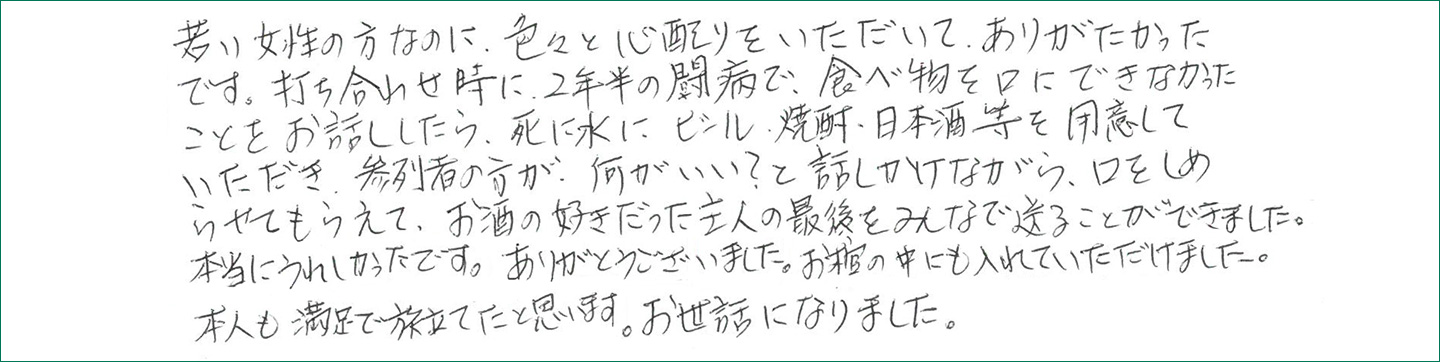 若い女性の方なのに、色々と心配りをいただいて、ありがたかった
です。打ち合わせ時に、2年半の闘病で、食べ物を口にできなかった
ことをお話ししたら、死に水にビール・焼酎・日本酒等を用意して
いただき、参列者の方が、何がいい？と話しかけながら、口をしめ
らせてもらえて、お酒の好きだった主人の最後をみんなで送ることができました。
本当にうれしかったです。ありがとうございました。お棺の中にも入れていただけました。
本人も満足で旅立てたと思います。お世話になりました。